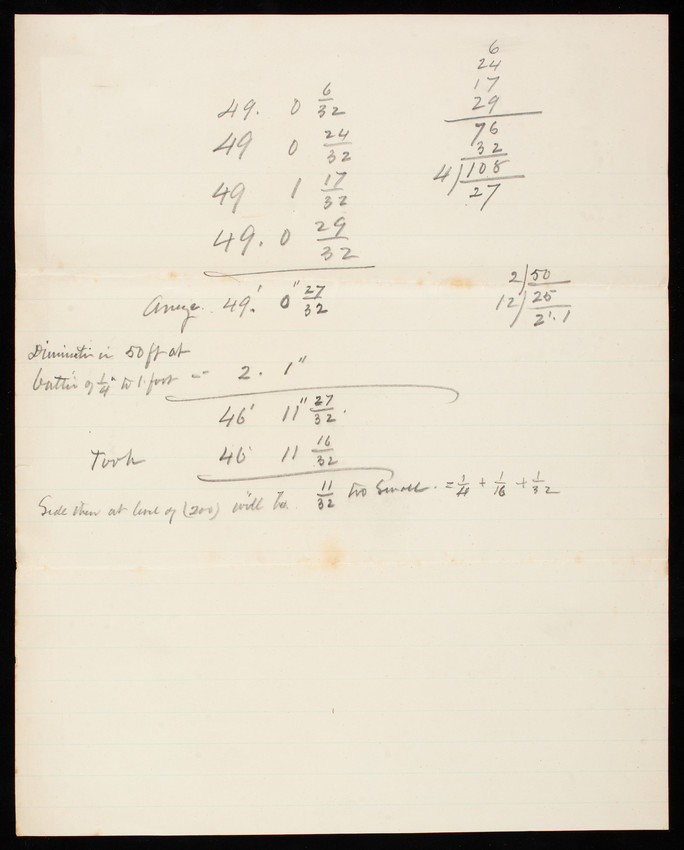 6
24
17
29
76
32
4)108
27
49. 0 6/32
49 0 24/32
49 1 17/32
49. 0 29/32
2)50
12)25
2'.1
49.' 0" 27/32
Diminution in 50 ft at
batter of 1/4" to 1 foot = 2. 1"
46' 11" 27/32.
Took 46 11 16/32
11/32 too small. = 1/4 + 1/16 + 1/32
Side then at level of (200) will be